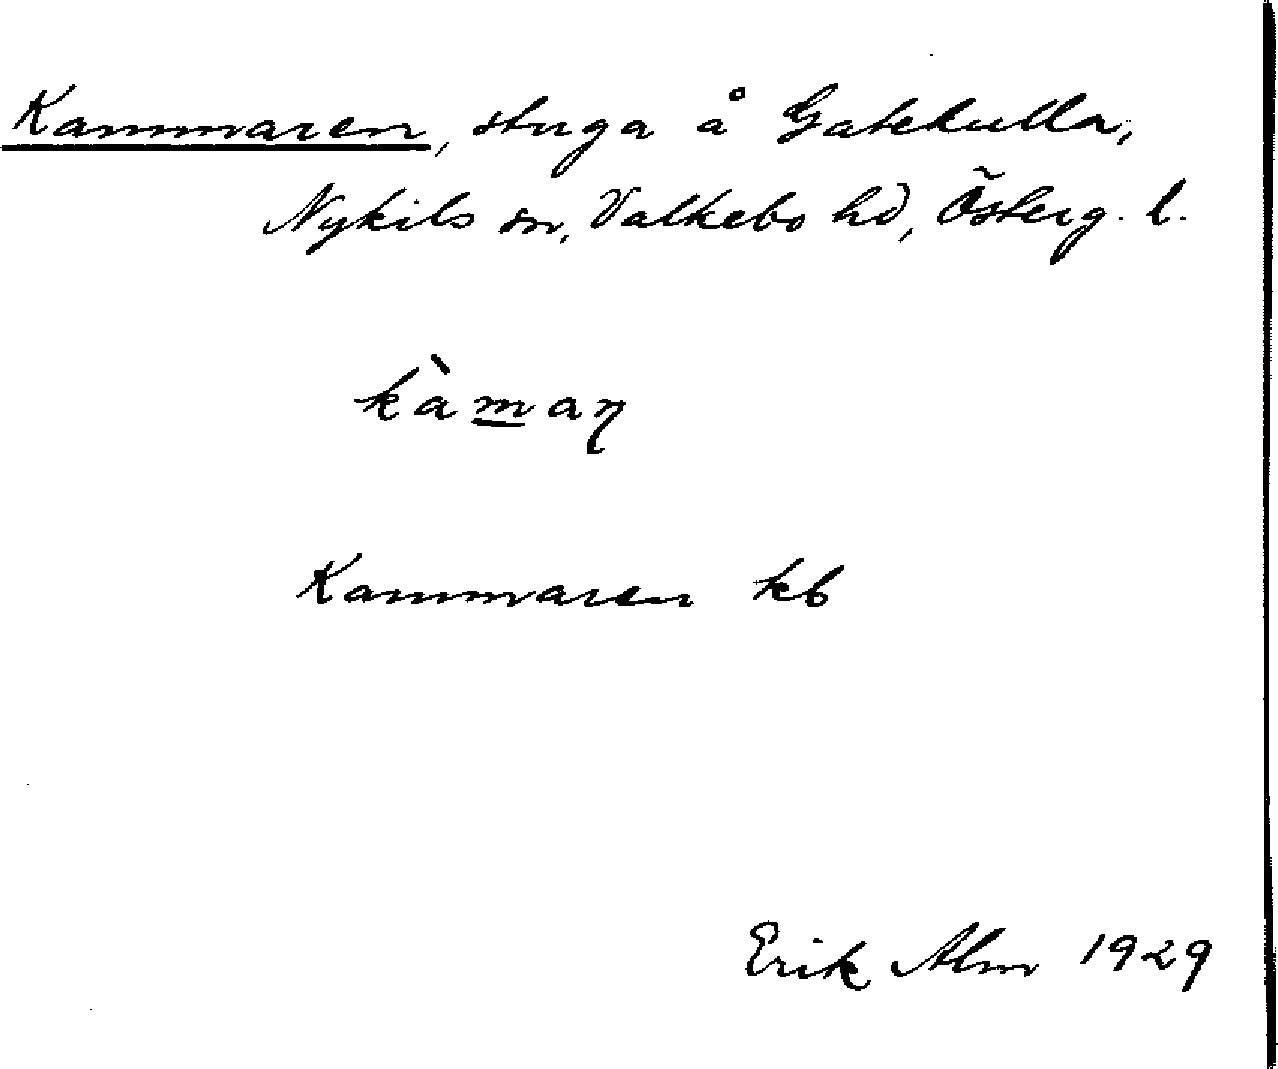 Kammaren, stuga å Gatekulla,
Nykils sn, Valkebo hd, Österg. l.
kàm̲aɳ
Kammaren kb
Erik Alm 1929